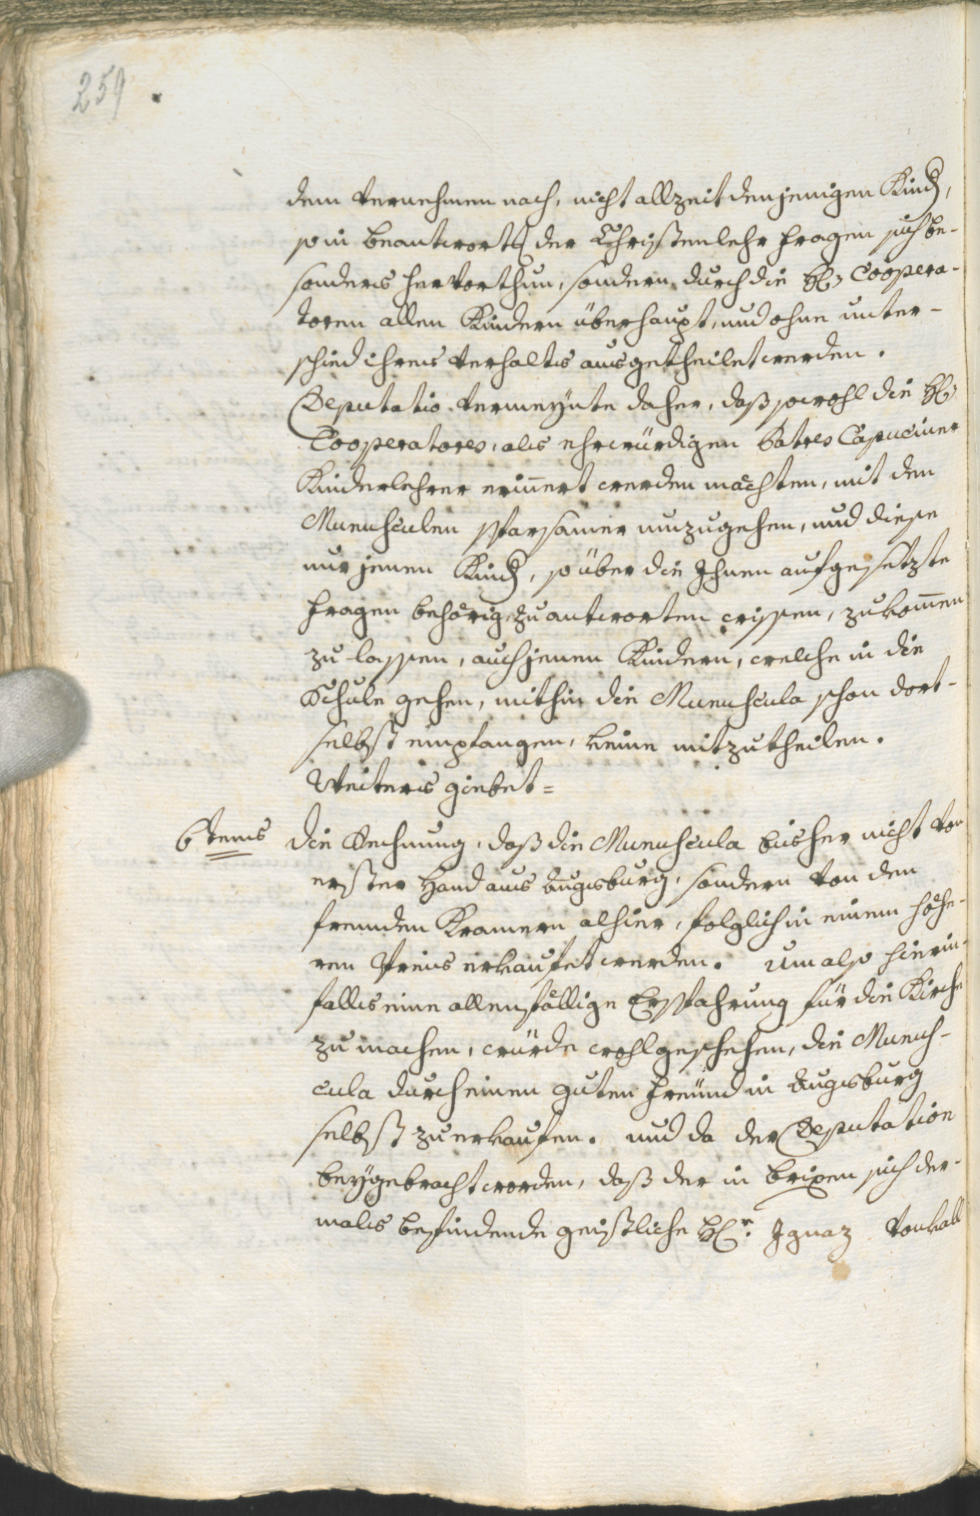 259
dem Vernehmen nach, nicht allzeit denjenigen Kind,
so in beantwort der Christenlehr Fragen sich be-
sonders hervorthun, sondern durch die H: Coopera-
toren allen Kindern überhaupt, und ohne unter-
schied ihres Verhalts ausgetheilet werden.
Deputatio vermeynte daher, daß sowohl die H:
Cooperatores, als ehrwürdigen Patres Capuciner
Kinderlehrer erinnert werden möchten, mit den
Munusculen sparsamer umzugehen, und diese
nur jenen Kind, so über die Ihnen aufgesetzte
Fragen behörig zu antworten wissen, zukommen
zu lassen, auch jenen Kindern, welche in die
Schule gehen, mithin die Munuscula schon dort-
selbst empfangen, keine mitzutheilen.
Weiters giebet=
6tens die Rechnung, daß die Munuscula bisher nicht von
erster Hand aus Augsburg, sondern von den
fremden Kramern alhier, folglich in einem höhe-
ren Preis erkaufet werden. Um also hierin-
falls eine allenfällige Ersparung für die Kirche
zu machen, würde wohl geschehen, die Munus-
cula durch einen guten Freünd in Augsburg
selbst zu erkaufen. und da der Deputation
beygebracht worden, daß der in Brixen sich der-
mals befindende geistliche H:r Ignaz Vonkall